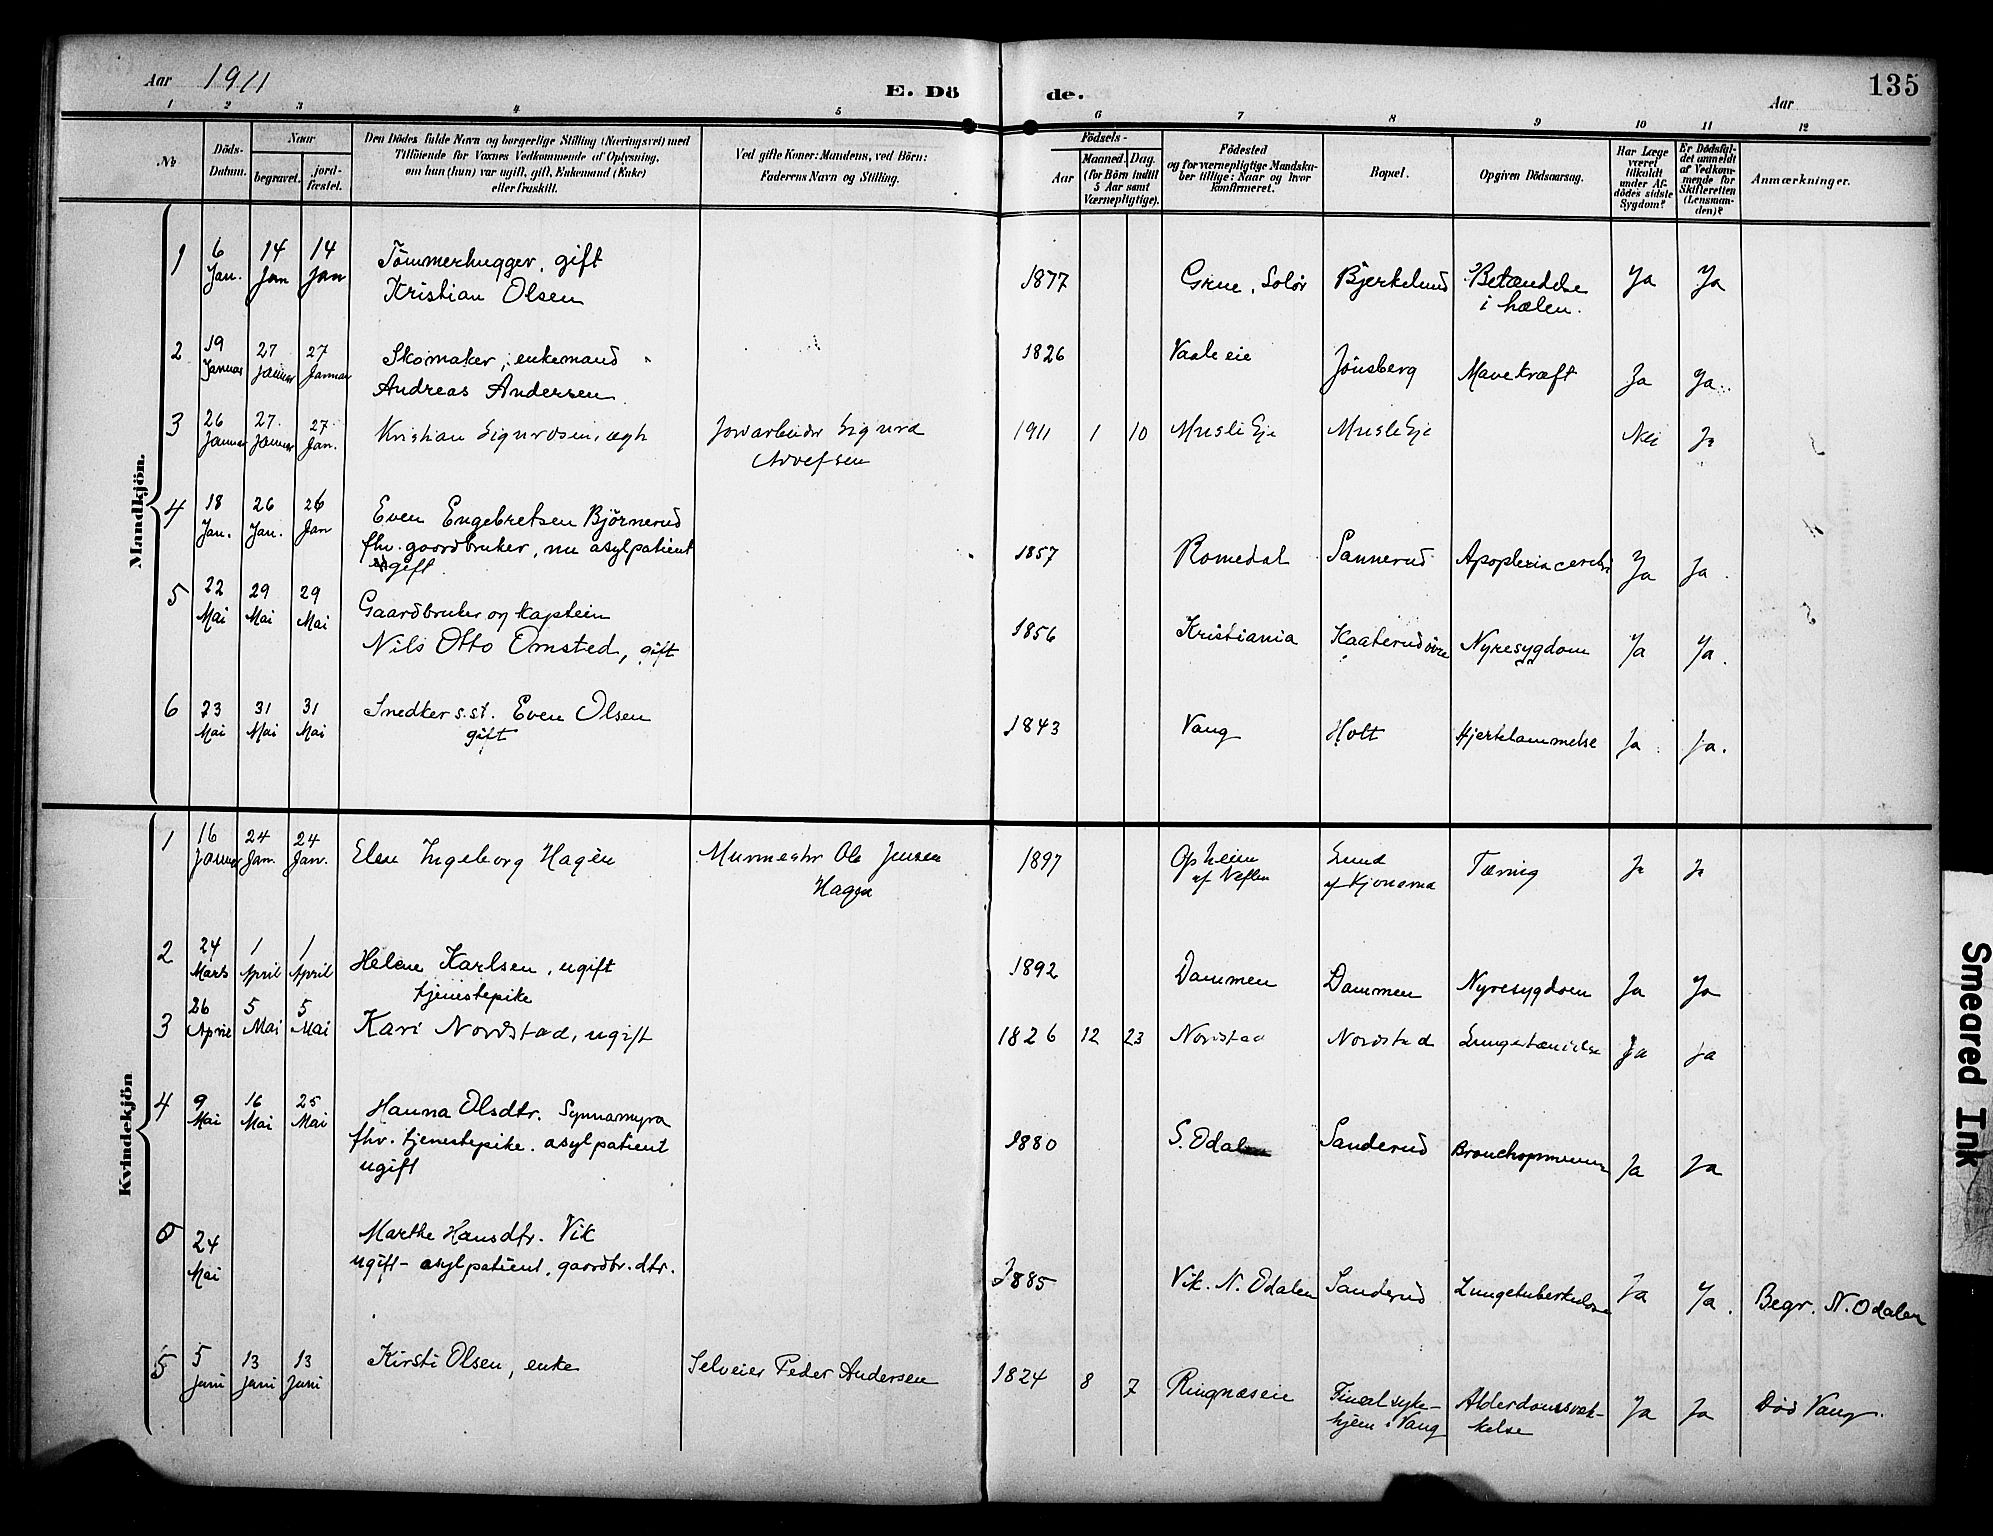 Aar 1911
E. Dö de.
Aar
135
1 2 3 4 5 6 7 8 9 10 11 12
No
Döds-Datum.
Naar
begravet.
jord-fæstet.
Den Dödes fulde Navn og borgerlige Stilling (Næringsvei) med
Tilföiende for Voxnes Vedkommende af Oplysning,
om han (hun) var ugift, gift, Enkemand (Enke)
eller fraskilt.
Ved gifte Koner: Mandens, ved Börn:
Faderens Navn og Stilling.
Födsels-
Aar
Maaned. Dag.
(for Börn indtil
5 Aar samt
Værnepligtige).
Födested
og for værnepligtige Mandska-
ber tillige: Naar og hvor
konfirmeret.
Bopæl.
Opgiven Dödsaarsag.
Har Læge
været
tilkaldt
under Af-
dödes sidste
Sygdom?
Er Dödsfal-
det anmeldt
af Vedkom-
mende for
Skifteretten
(Lensman-
den)?
Anmærkninger.
Mandkjön.
1 6 Jan. 14 Jan 14 Jan Tömmerhugger, gift
Kristian Olsen
1877 Grue, Solör Bjerkelund Betændelse
i hælen. Ja Ja
2 19 Januar 27 Januar 27 Januar Skomaker, enkemand
Andreas Andersen
1826 Vaale eie Jönsberg Mavekræft Ja Ja
3 26 Januar 27. Januar 27. Jan. Kristian Sigurdsen, ægh Jordarbeider Sigurd
1911 1 10 Musli Eje Musli Eje Nei Ja
4 18 Jan. 26 Jan. 26 Jan Even Engebretsen Björnerud
fhv. gaardbruker, nu asylpatient
gift
1857 Romedal Sannerud Apoplexia cerebri Ja Ja
5 22 Mai 29 Mai 29 Mai Gaardbruker og kaptein
Nils Otto Omsted, gift
1856 Kristiania Kaaterud övre Nyresygdom Ja Ja.
6 23 Mai 31 Mai 31 Mai Snedker s.st. Even Olsen
gift
1843 Vang Holt Hjertelammelse Ja Ja.
Kvindekjön
1 16 Januar 24 Jan. 24 Jan. Elen Ingeborg Hagen Murmester Ole Jensen
Hagen
1897 Opheim
af Lund
af Tæring Ja Ja
2 24 Mars 1 April 1 April Helene Karlsen, ugift
tjenestepike
1892 Dammen Dammen Nyresygdom Ja Ja
3 26 April 5 Mai 5 Mai Kari Nordstad, ugift
1826 12 23 Nordstad Nordstad Lungebetændelse Ja Ja
4 9 Mai 16 Mai 25 Mai Hanna Olsdtr. Synnamyra
fhv. tjenestepike. asylpatient
ugift
1880 S. Odalen Sanderud Bronchopneumoni Ja Ja
5 24 Mai Marthe Hansdtr. Vik
ugift - asylpatient, gaardbr. dtr.
1885 Vik. N. Odalen Sanderud Lungetuberkulose Ja Ja. Begr. N. Odalen
5 5 Juni 13 Juni 13 Juni Kirsti Olsen, enke Selveier Peder Andersen
1824 8 7 Ringnæseie Fineal syke-
hjem i Vang Alderdomssvæk-
kelse Ja Ja Död Vang.
Smeared Ink